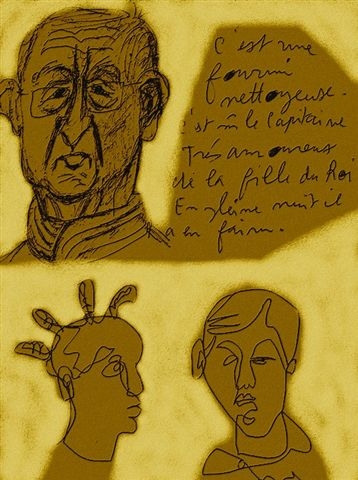 C'est une
fourmi
nettoyeuse.
C'est le Capitaine
Très amoureux
de la fille du Roi
En pleine nuit il
a eu faim.